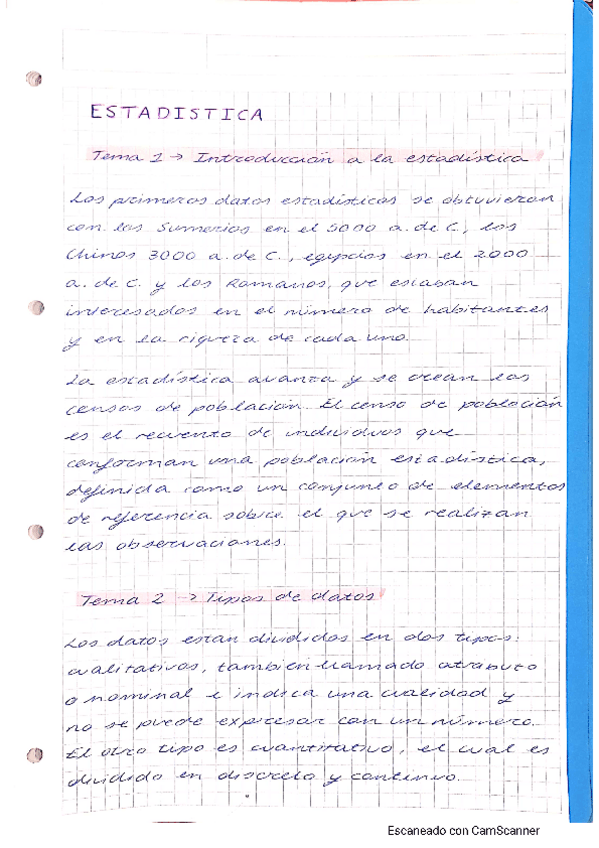 ESTADISTICA
Tema 1 → Introducción a la estadística
Los primeros datos estadísticos se obtuvieron
con los Sumerios en el 5000 a. de C., los
Chinos 3000 a. de C., egipcios en el 2000
a. de C. y los Romanos, que estaban
interesados en el número de habitantes
y en la riqueza de cada uno.
La estadística avanza y se crean los
censos de población. El censo de población
es el recuento de individuos que
conforman una población estadística,
definida como un conjunto de elementos
de referencia sobre el que se realizan
las observaciones.
Tema 2 → Tipos de datos
Los datos estan divididos en dos tipos:
cualitativos, tambien llamado atributo
o nominal e indica una cualidad y
no se puede expresar con un número.
El otro tipo es cuantitativo, el cual es
dividido en discreto y continuo.
Escaneado con CamScanner